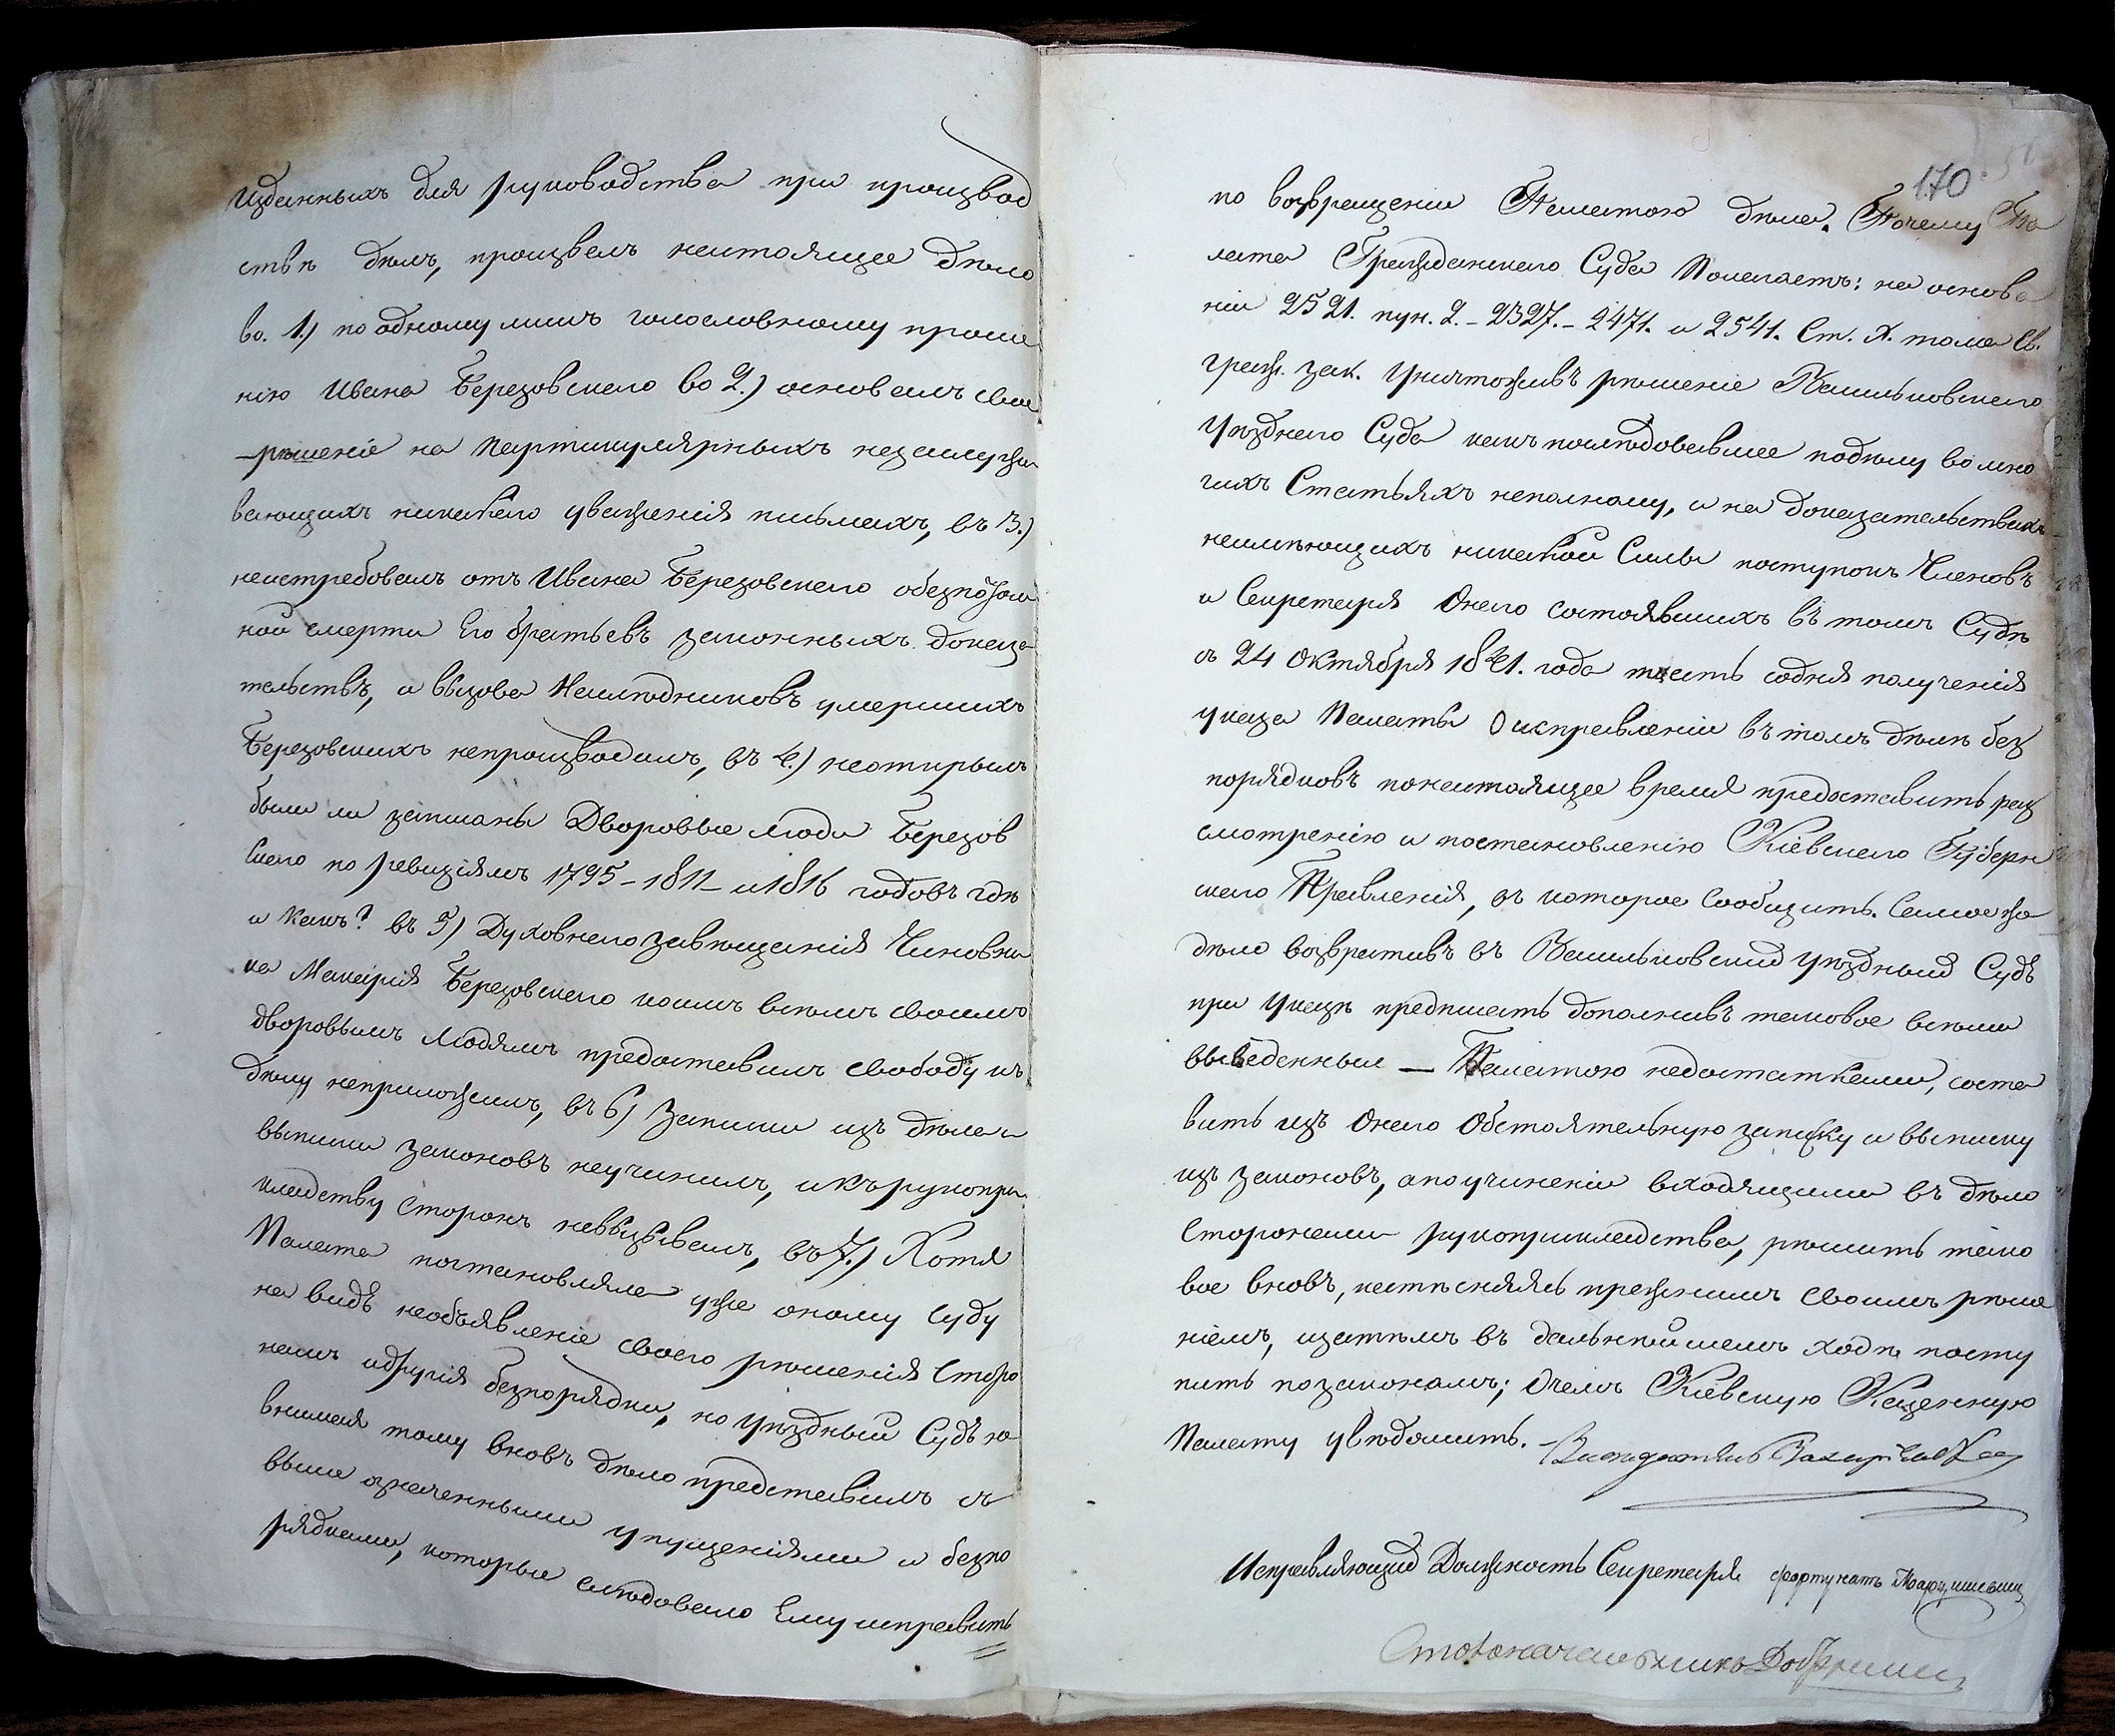 изданныхъ для руководства при производ
ствѣ дѣлъ, произвелъ настоящее дѣло
во. 1.) по одному лишъ голословному проше
нію Ивана Березовскаго во 2.) основалъ свое
рѣшеніе на партикулярныхъ незаслужи
вающихъ никакаго уваженія письмахъ, въ 3.)
неистребовалъ отъ Ивана Березовскаго обезпотом
ной смерти Его братьевъ законныхъ доказа
тельствъ, и вызова Наслѣдниковъ умершихъ
Березовскихъ непроизводилъ, въ 4.) неоткрылъ
были ли записаны Дворовые люди Березов
скаго по ревизіямъ 1795 - 1811 - и 1816 годовъ гдѣ
и какъ? въ 5) Духовнаго завѣщанія Чиновни
ка Макарія Березовскаго коимъ всѣмъ своимъ
дворовымъ Людямъ предоставилъ свободу къ
дѣлу неприложилъ, въ 6) Записки изъ дѣла и
выписки законовъ неучинилъ, и къ рукопри
кладству Сторонъ невызывалъ, въ 7.) Хотя
Палата поставляла уже оному Суду
на видъ необъявленіе своего рѣшенія Сторо
намъ идругія безпорядки, но уѣздный Судъ не
внимая тому вновь дѣло представилъ съ
выше означенными упущеніями и безпо
рядками, которые слѣдовало Ему исправить
170
по возвращеніи Палатою дѣла. Почему Па
лата Гражданскаго Суда Полагаетъ: на основа
ніи 2521. пун. 2. - 2327. - 2471. и 2541. Ст. X. тома Св.
граж. зак. Уничтоживъ рѣшеніе Васильковскаго
уѣзднаго Суда какъ послѣдовавшее подѣлу во мно
гихъ Статьяхъ неполному, и на доказательствахъ
неимѣющихъ никакой Силы поступокъ Членовъ
и Секретаря Онаго состоявшихъ въ томъ Судѣ
съ 24 Октября 1841. года тоесть содня полученія
указа Палаты О исправленіи въ томъ дѣлѣ без
порядковъ понастоящее время предоставить раз
смотренію и постановленію Кіевскаго Губерн
скаго Правленія, въ которое Сообщить. Самое жъ
дѣло возвративъ въ Васильковскій уѣздный Судъ
при указѣ предписать дополнивъ таковое всѣми
выведенными — Палатою недостатками, соста
вить изъ Онаго Обстоятельную записку и выписку
изъ законовъ, апоучиненіи входящими въ дѣло
Сторонами рукоприкладства, рѣшить тако
вое вновь, нестѣсняясь прежнимъ своимъ рѣше
ніемъ, изатѣмъ въ дальнѣйшемъ ходѣ посту
пить позаконамъ; Очемъ Кіевскую Казенную
Палату увѣдомить. —
Исправляющій Должность Секретаря Фортунатъ
Столоначальникъ